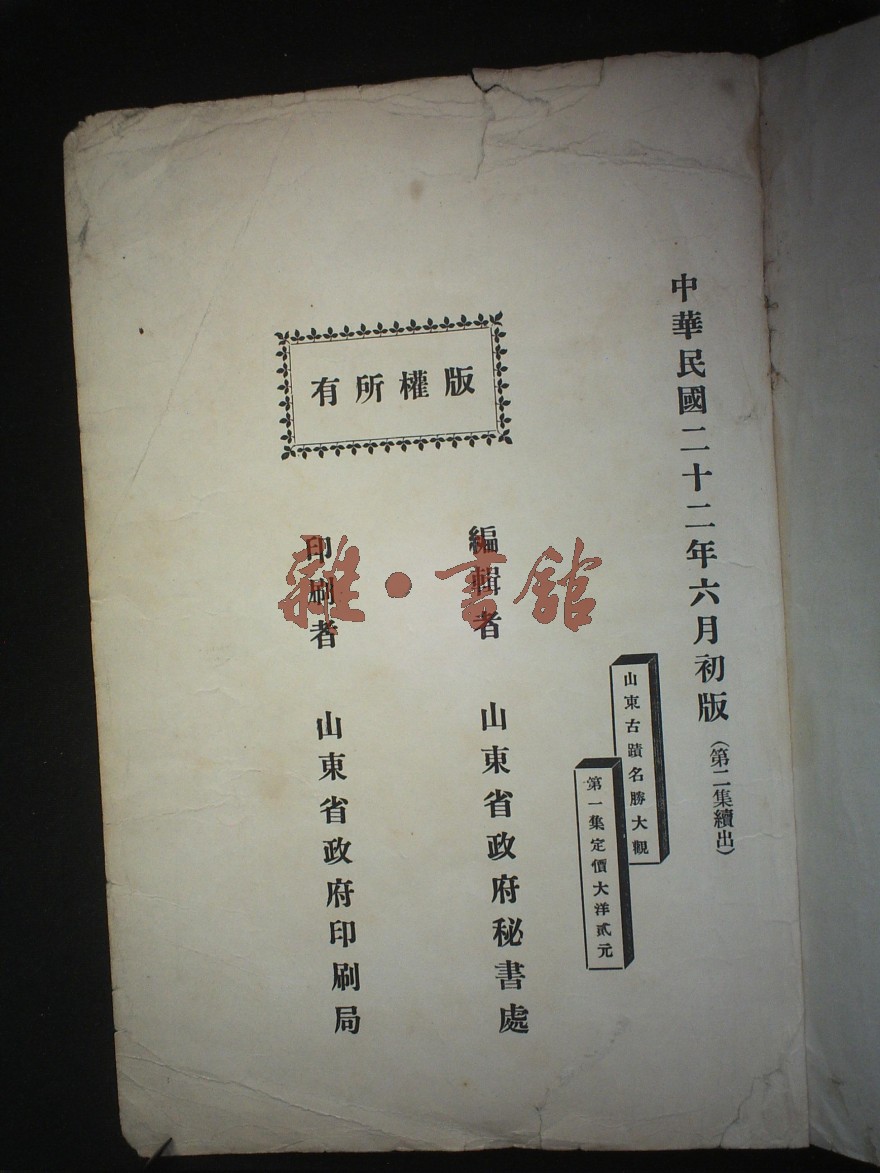 中華民國二十二年六月初版(第二集續出)
山東古蹟名勝大觀
第一集定價大洋貳元
編輯者 山東省政府秘書處
版權所有
印刷者 山東省政府印刷局
雜·書館